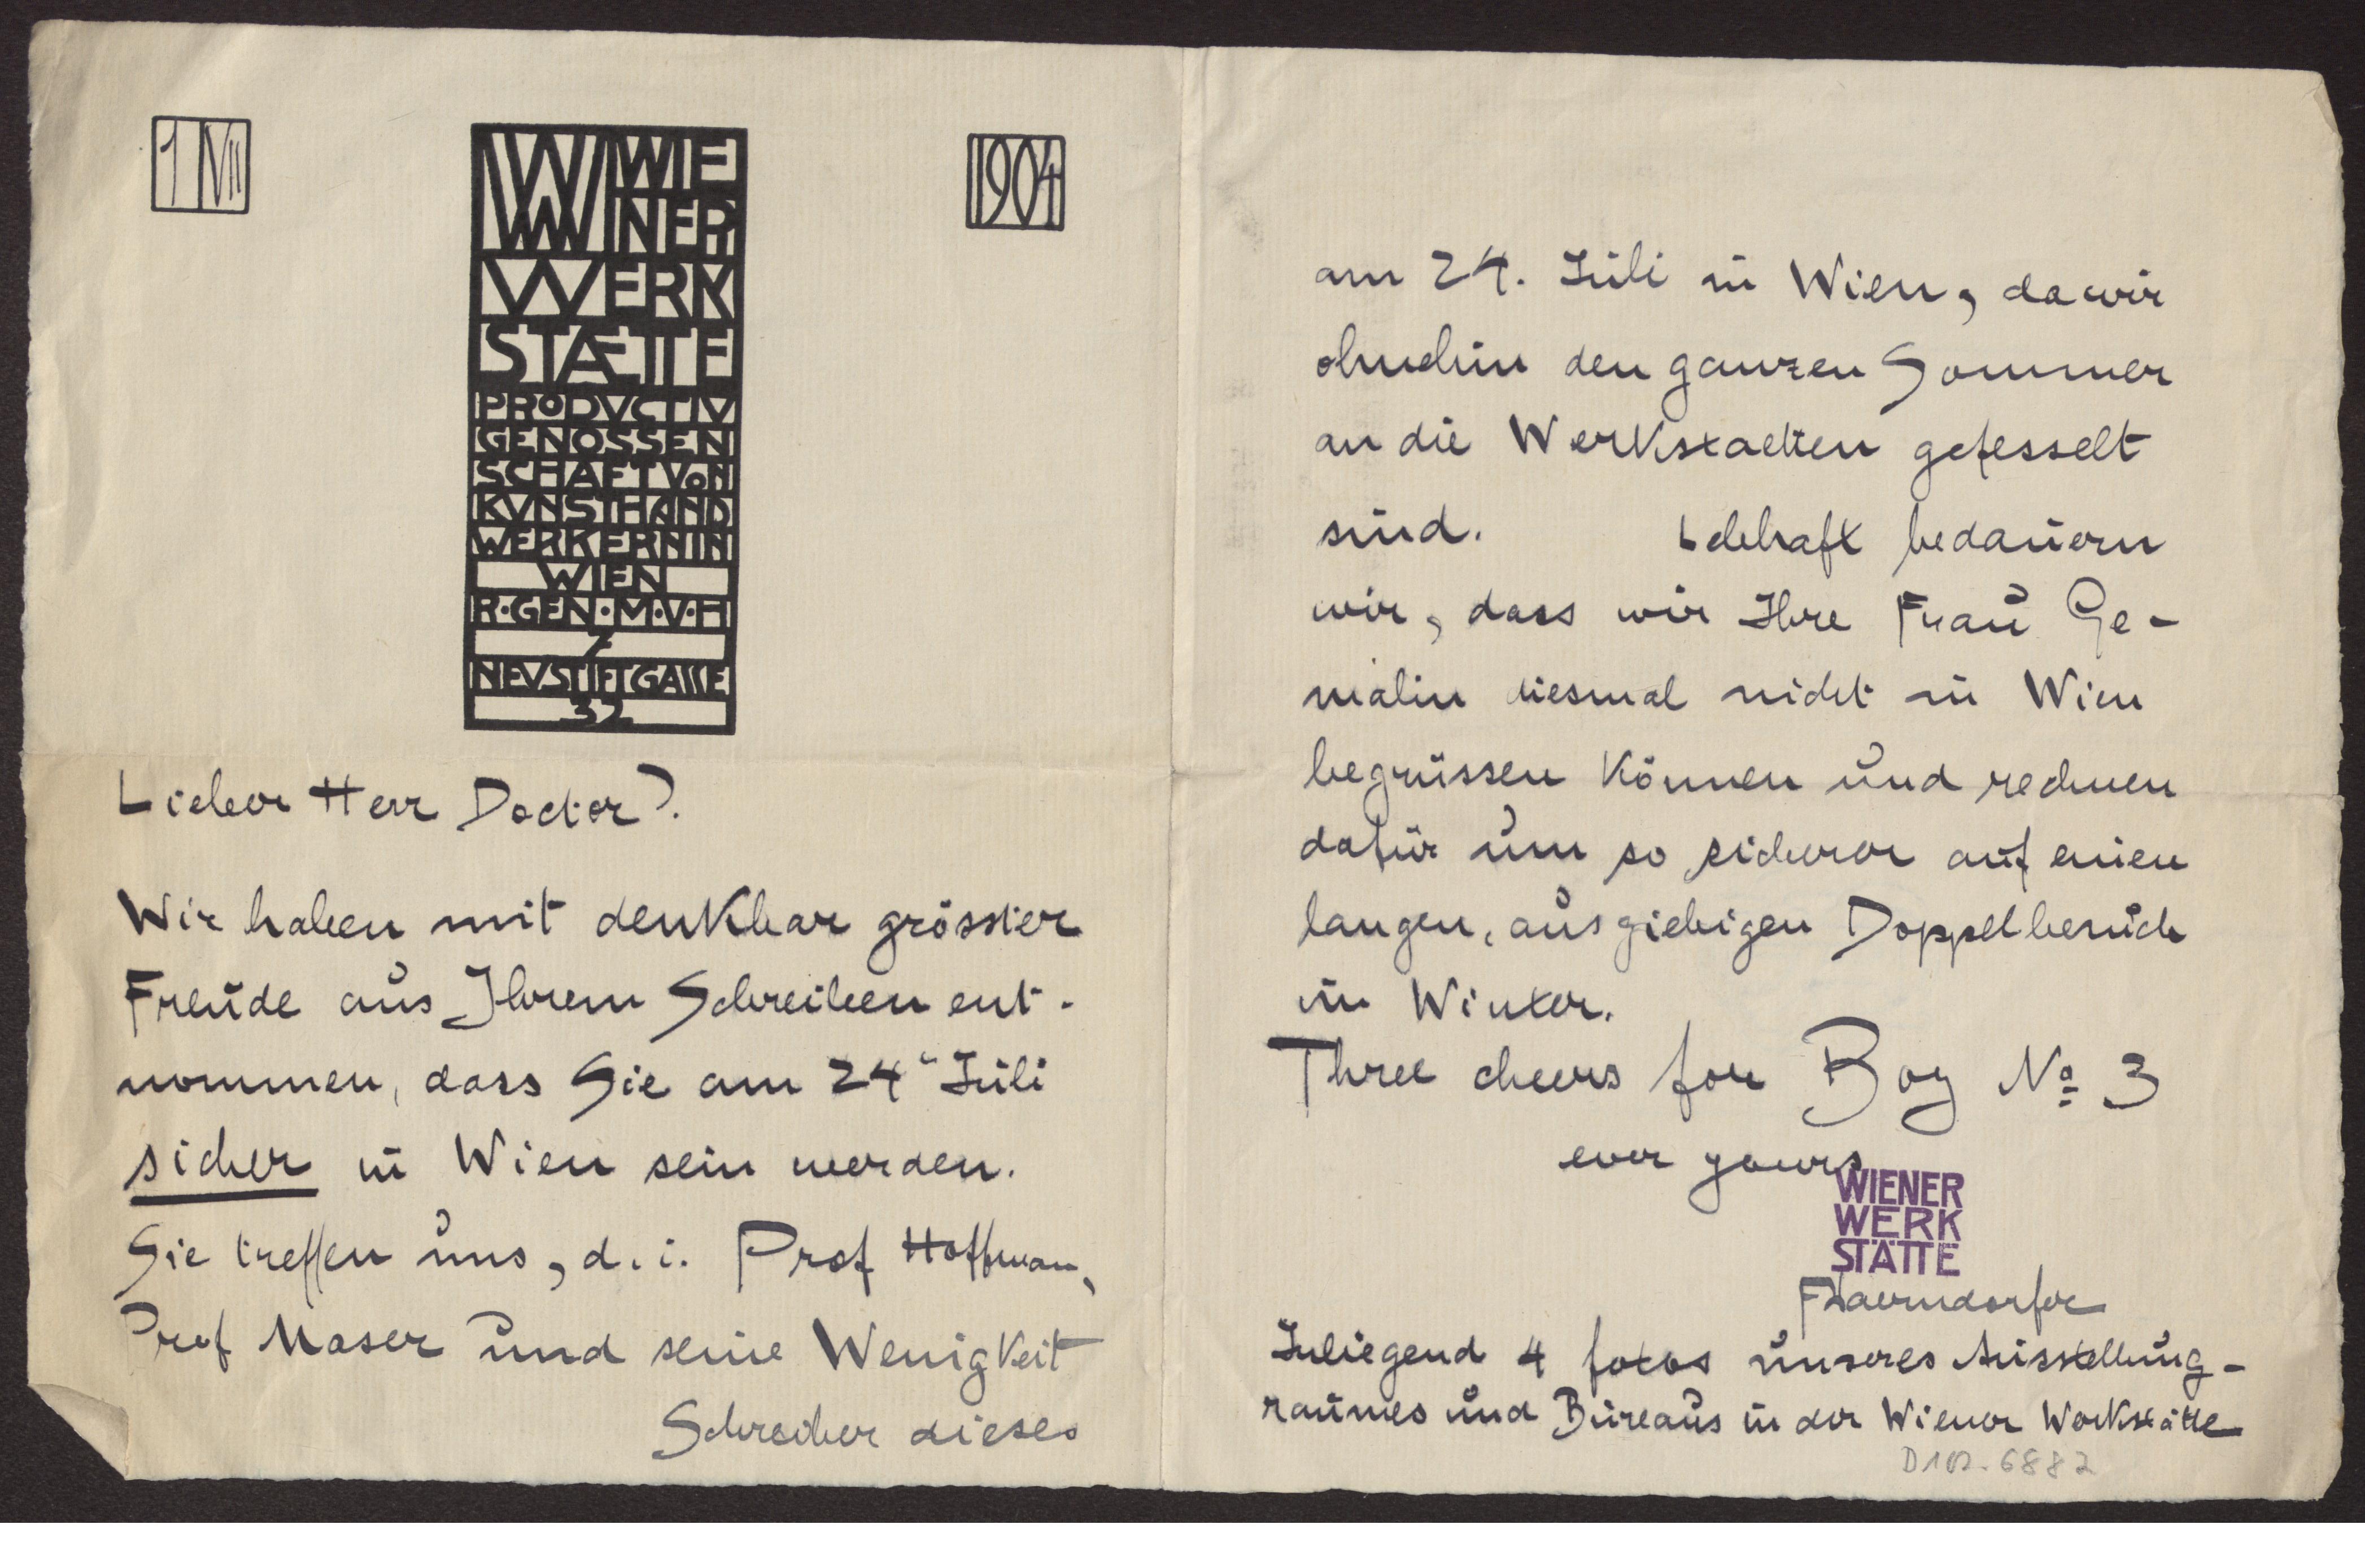 1 VII
WW WIE
NER
WERK
STÆTTE
PRODVCTIV
GENOSSEN
SCHAFT VON
KVNSTHAND
WERKERN IN
WIEN
R·GEN·M·V·H
7
NEVSTIFTGASSE
32
1904
Lieber Herr Doctor!
Wir haben mit denkbar grösster
Freude aus Ihrem Schreiben ent-
nommen, dass Sie am 24" Juli
sicher in Wien sein werden.
Sie treffen uns, d. i. Prof Hoffman,
Prof Moser und seine Wenigkeit
Schreiber dieses
am 24. Juli in Wien, da wir
ohnehin den ganzen Sommer
an die Werkstaetten gefesselt
sind. Lebhaft bedauern
wir, dass wir Ihre Frau Ge-
malin diesmal nicht in Wien
begrüssen können und rechnen
dafür um so sicherer auf einen
langen, ausgiebigen Doppelbesuch
im Winter.
Three cheers for Boy No 3
ever yours
WIENER
WERK
STÄTTE
FWaerndorfer
Inliegend 4 fotos unseres Ausstellung-
raumes und Bureaus in der Wiener Werkstätte
D 102.6882